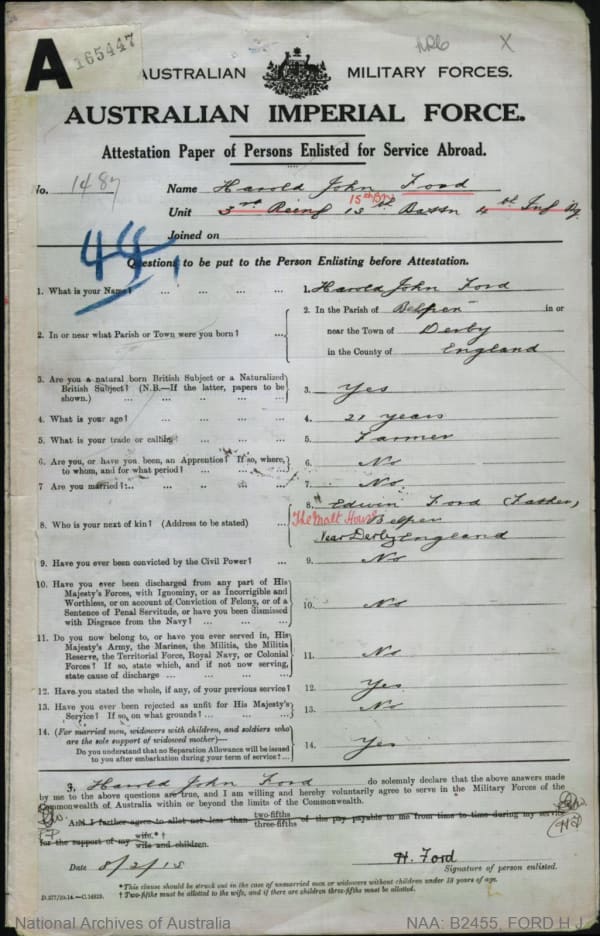 A 165447
AUSTRALIAN MILITARY FORCES.
AUSTRALIAN IMPERIAL FORCE.
Attestation Paper of Persons Enlisted for Service Abroad.
No. 1487 Name Harold John Ford
15th Bn
Unit 3rd Reinf 13th Battn 4th Inf Bg
Joined on
44
Questions to be put to the Person Enlisting before Attestation.
1. What is your Name? ... ... ... ... 1. Harold John Ford
2. In or near what Parish or Town were you born? ... 2. In the Parish of Belper in or
near the Town of Derby
in the County of England
3. Are you a natural born British Subject or a Naturalized
British Subject? (N.B.—If the latter, papers to be
shown.) ... ... ... ... 3. Yes
4. What is your age? ... ... ... ... 4. 21 years
5. What is your trade or calling? ... ... ... 5. Farmer
6. Are you, or have you been, an Apprentice? If so, where,
to whom, and for what period? ... ... ... 6. No
7 Are you married?... ... ... ... 7. No
8. Who is your next of kin? (Address to be stated) ... 8. Edwin Ford (Father)
The Malt House Belper
Near Derby England
9. Have you ever been convicted by the Civil Power? ... 9. No
10. Have you ever been discharged from any part of His
Majesty's Forces, with Ignominy, or as Incorrigible and
Worthless, or on account of Conviction of Felony, or of a
Sentence of Penal Servitude, or have you been dismissed
with Disgrace from the Navy? ... ... ... 10. No
11. Do you now belong to, or have you ever served in, His
Majesty's Army, the Marines, the Militia, the Militia
Reserve, the Territorial Force, Royal Navy, or Colonial
Forces? If so, state which, and if not now serving,
state cause of discharge ... ... ... 11. No
12. Have you stated the whole, if any, of your previous service? 12. Yes
13. Have you ever been rejected as unfit for His Majesty's
Service? If so, on what grounds? ... ... ... 13. No
14. (For married men, widowers with children, and soldiers who
are the sole support of widowed mother)—
Do you understand that no Separation Allowance will be issued
to you after embarkation during your term of service? ... 14. Yes
I, Harold John Ford do solemnly declare that the above answers made
by me to the above questions are true, and I am willing and hereby voluntarily agree to serve in the Military Forces of the
Commonwealth of Australia within or beyond the limits of the Commonwealth.
And I further agree to allot not less than two-fifths three-fifths of the pay payable to me from time to time during my service
for the support of my wife.* † wife and children.
Date 8/2/15 H. Ford
Signature of person enlisted.
D.277/10.14.—C.14313. *This clause should be struck out in the case of unmarried men or widowers without children under 18 years of age.
† Two-fifths must be allotted to the wife, and if there are children three-fifths must be allotted.
National Archives of Australia NAA: B2455, FORD H J